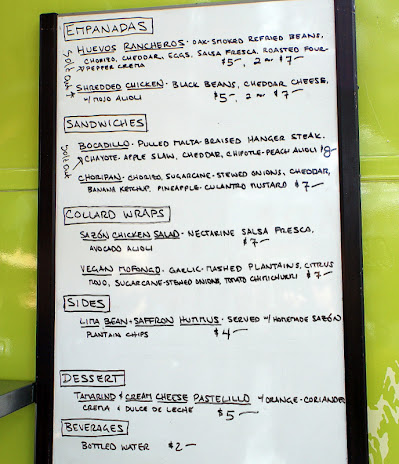 EMPANADAS
Sold Out
HUEVOS RANCHEROS - OAK-SMOKED REFRIED BEANS,
CHORIZO, CHEDDAR, EGGS, SALSA FRESCA, ROASTED FOUR
PEPPER CREMA $5, 2 for $7
SHREDDED CHICKEN - BLACK BEANS, CHEDDAR CHEESE,
w/ MOJO ALIOLI $5, 2 for $7
SANDWICHES
Sold Out
BOCADILLO - PULLED MALTA-BRAISED HANGER STEAK,
CHAYOTE-APPLE SLAW, CHEDDAR, CHIPOTLE-PEACH ALIOLI $8
CHORIPAN - CHORIZO, SUGARCANE-STEWED ONIONS, CHEDDAR,
BANANA KETCHUP, PINEAPPLE-CULANTRO MUSTARD $7
COLLARD WRAPS
SAZÓN CHICKEN SALAD - NECTARINE SALSA FRESCO,
AVOCADO ALIOLI $7
VEGAN MOFONGO - GARLIC-MASHED PLANTAINS, CITRUS
MOJO, SUGARCANE-STEWED ONIONS, TOMATO CHIMICHURRI $7
SIDES
LIMA BEAN + SAFFRON HUMMUS - SERVED w/ HOMEMADE SAZÓN
PLANTAIN CHIPS $4
DESSERT
TAMARIND & CREAM CHEESE PASTELILLO w/ ORANGE-CORIANDER
CREMA & DULCE DE LECHE $5
BEVERAGES
BOTTLED WATER $2